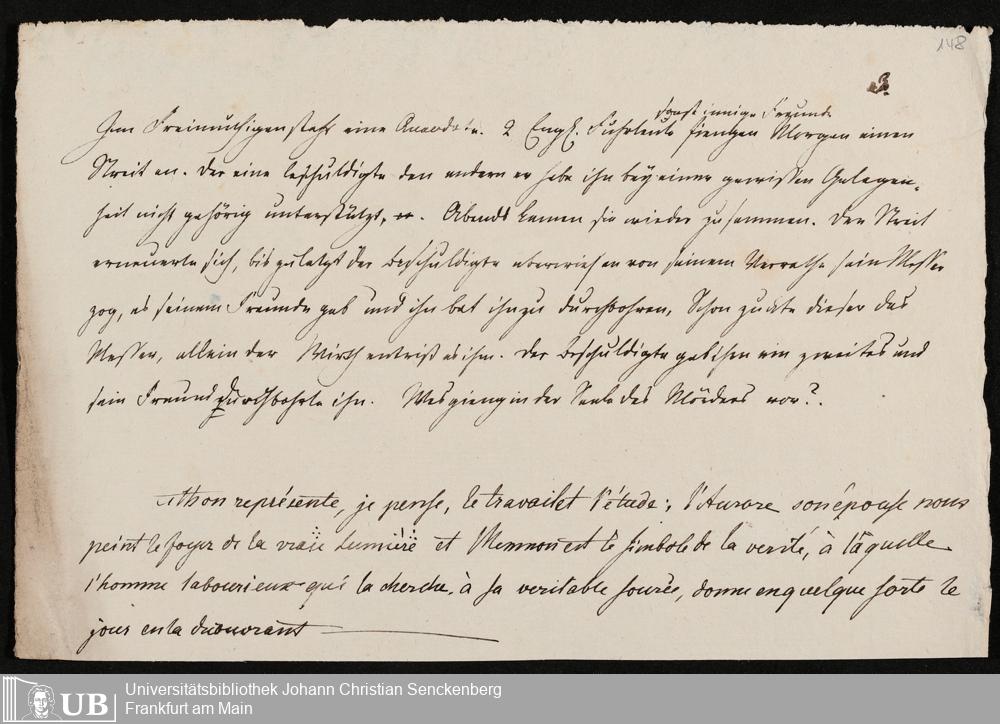 148
3.
Im Freimuthigen steht eine Anecdote. 2 Engl. Fuhrleute sonst innige Freunde fiengen Morgen einen
Streit an. Der eine beschuldigte den andern er habe ihn bey einer gewissen Gelegen-
heit nicht gehörig unterstützt. Abends kamen sie wieder zusammen. Der Streit
erneuerte sich, bis zuletzt der Beschuldigte überwiesen von seinem Verrathe sein Messer
zog, es seinem Freunde gab und ihn bat ihn zu durchbohren. Schon zuckte dieser das
Messer, allein der Wirth entriß es ihm. Der Beschuldigte gab ihm ein zweites und
sein Freund durchbohrte ihn. Was gieng in der Seele des Mörders vor?
Ithon représente, je pense, le travail et l'étude; l'Aurore son épouse nous
peint le foyer de la vraie lumière et Memnon est le simbole de la verité, à laquelle
l'homme labourieux qui la cherche, à sa veritable source, donne en quelque sorte le
jour en la découvrant
UB
Universitätsbibliothek Johann Christian Senckenberg
Frankfurt am Main